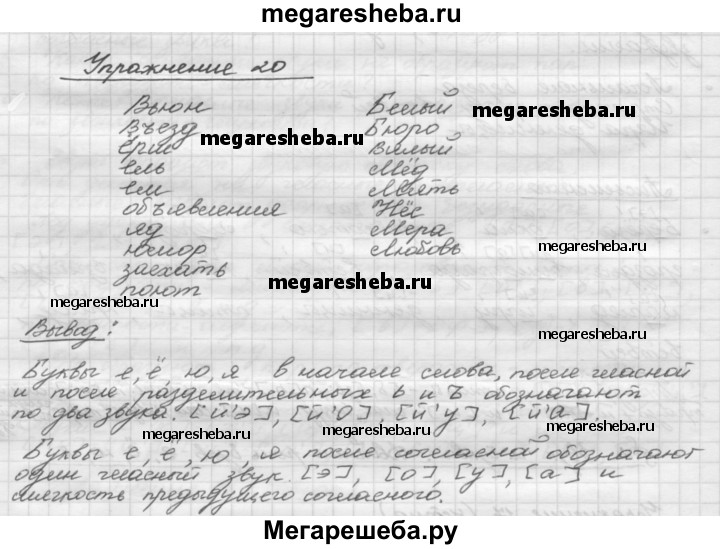 megaresheba.ru
Упражнение 20
Вьюн Белый
megaresheba.ru
Въезд Бюро
megaresheba.ru
Ёрш Вялый
ель Мёд
ем Мять
объявления Нёс
яд Мера
юмор Любовь
megaresheba.ru
заехать
megaresheba.ru
поют
megaresheba.ru
Вывод:
megaresheba.ru
Буквы е, ё, ю, я в начале слова, после гласной
и после разделительных ь и ъ обозначают
по два звука. [й'э], [й'о], [й'у], [й'а].
megaresheba.ru megaresheba.ru
Буквы е, ё, ю, я после согласной обозначают
один гласный звук. [э], [о], [у], [а] и
мягкость предыдущего согласного.
Мегарешеба.ру